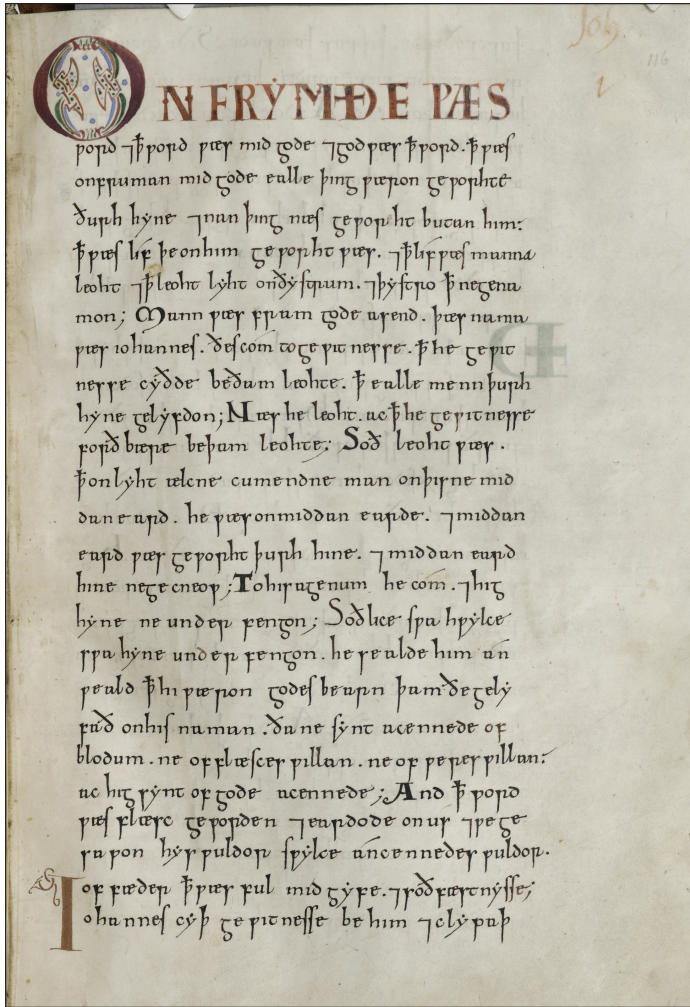 Joh.
116
1
ON FRYMÐE ǷÆS
ƿord ⁊ꝥ ƿord ƿæs mid gode ⁊god ƿæs ꝥ ƿord. ꝥ ƿæs
onfruman mid gode ealle þing ƿæron geƿorhte
ðurh hẏne ⁊nan þing næs geƿorht butan him:
ꝥ ƿæs lif þe on him geƿorht ƿæs. ⁊ꝥ lif ƿæs manna
leoht ⁊ꝥ leoht lẏht onðẏstrum. ⁊þẏstro ꝥ negena
mon; Mann ƿæs fram gode asend. þæs nama
ƿæs iohannes. ðes com to geƿitnesse. ꝥ he geƿit
nesse cẏðde beðam leohte. ꝥ ealle menn þurh
hẏne gelẏfdon; Næs he leoht. ac ꝥ he geƿitnesse
forð bære beþam leohte; Soð leoht ƿæs.
ꝥ onlẏht ælcne cumendne man onþisne mid
dan eard. he ƿæs onmiddan earde. ⁊middan
eard ƿæs geƿorht þurh hine. ⁊middan eard
hine negecneoƿ; To his agenum he com. ⁊hig
hẏne ne under fengon; Soðlice sƿa hƿẏlce
sƿa hẏne under fengon. he sealde him an
ƿeald ꝥ hi ƿæron godes bearn þam ðe gelẏ
fað onhis naman. ða ne sẏnt acennede of
blodum. ne of flæsces ƿillan. ne of ƿeres ƿillan:
ac hig sẏnt of gode acennede; And ꝥ ƿord
ƿæs flæsc geƿorden ⁊eardode on us ⁊ƿe ge
saƿon hẏs ƿuldor sƿẏlce áncennedes ƿuldor.
of fæder ꝥ ƿæs ful mid gẏfe. ⁊soðfæstnẏsse;
Iohannes cẏþ geƿitnesse be him ⁊clẏƿaþ